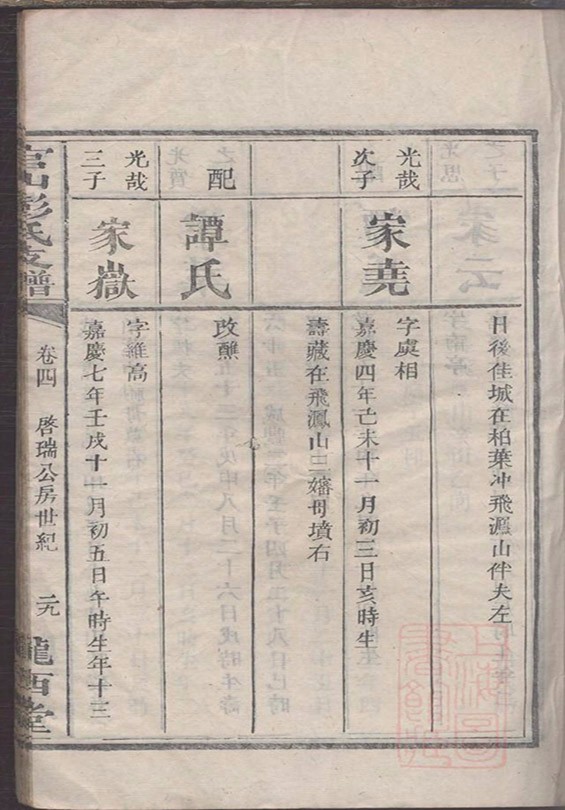 日後佳城在柏葉冲飛鳳山伴夫左
光哉
次子
家堯
字虞相
嘉慶四年己未十一月初三日亥時生
壽藏在飛鳳山三嬸母墳右
之配
譚氏
改醮
光哉
三子
家嶽
字維高
嘉慶七年壬戌十一月初五日午時生年十三
官山彭氏支譜
卷四
啓瑞公房世紀
二九
隴西堂